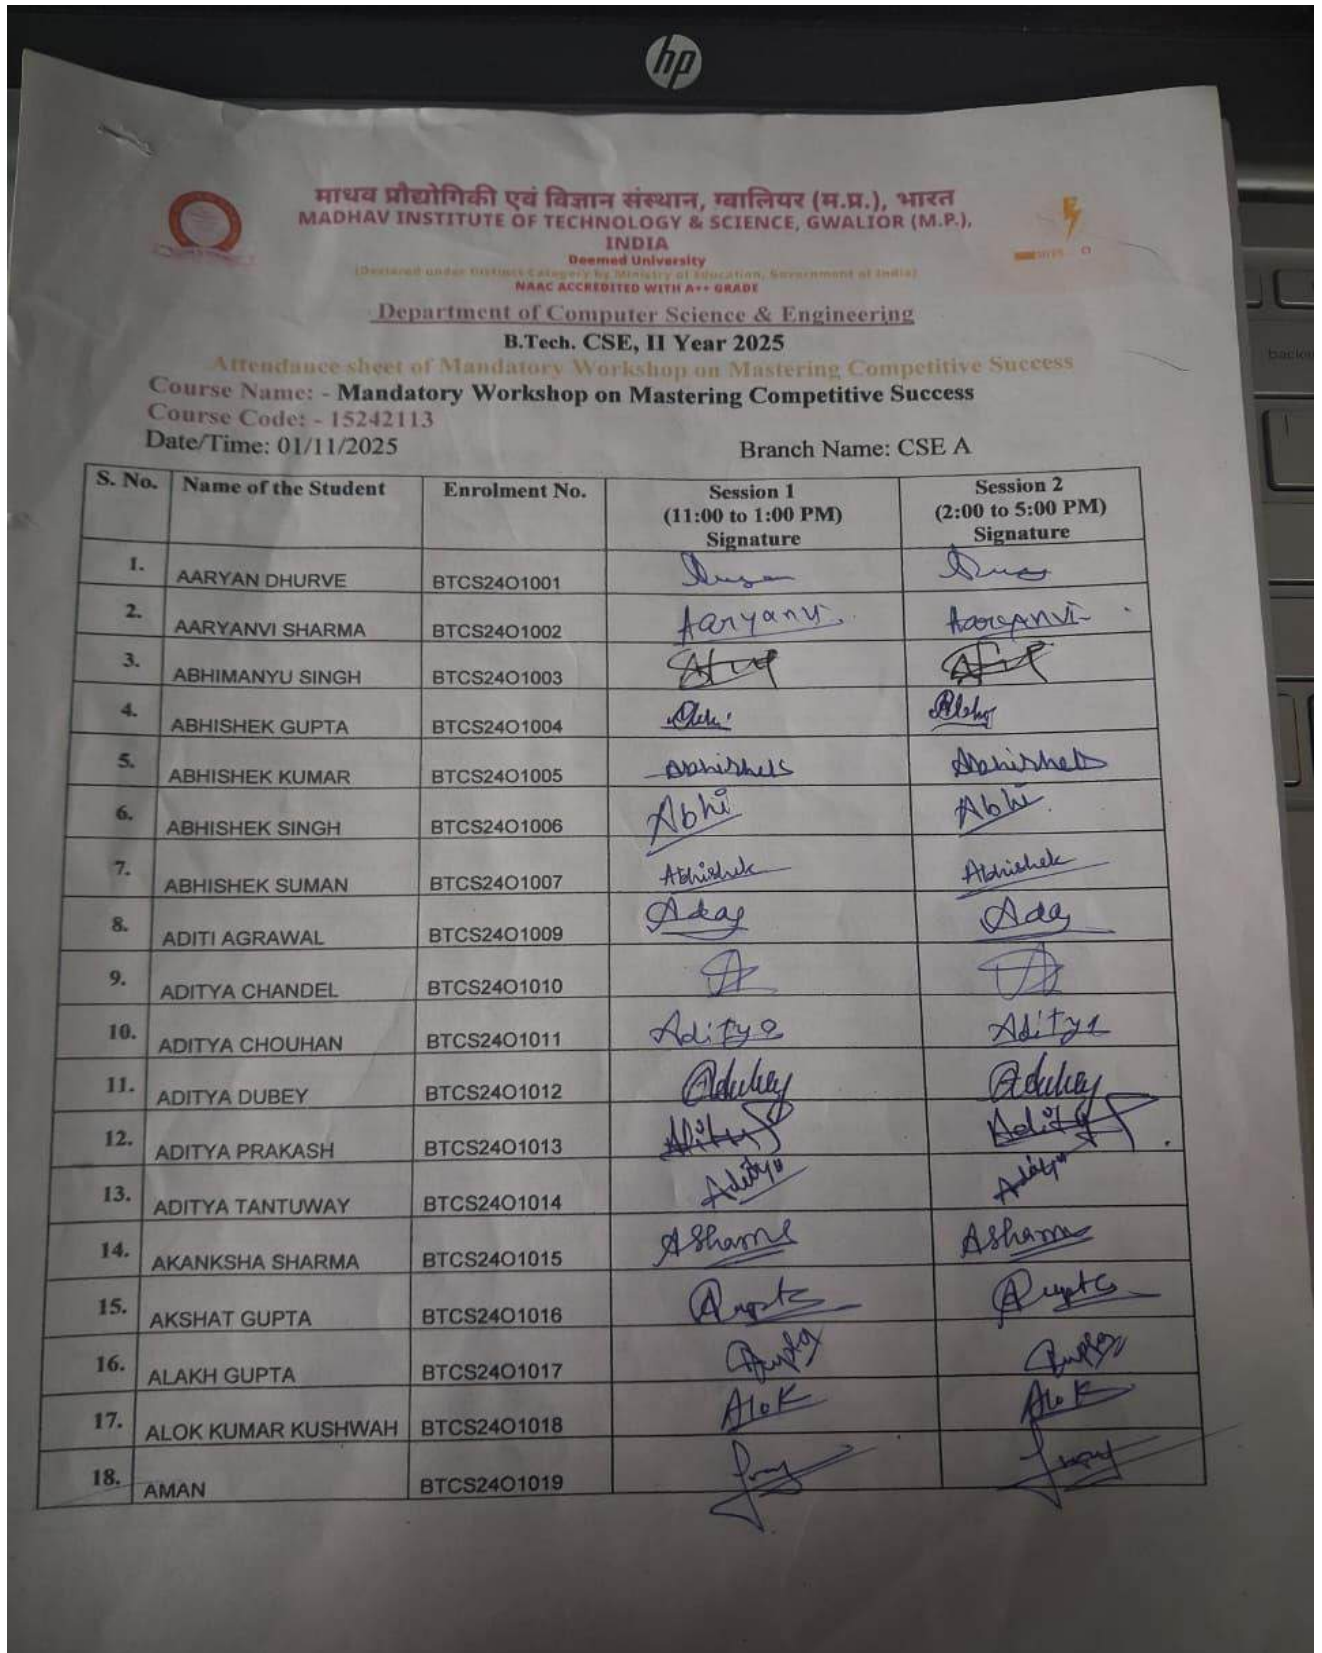 hp
माधव प्रौद्योगिकी एवं विज्ञान संस्थान, ग्वालियर (म.प्र.), भारत
MADHAV INSTITUTE OF TECHNOLOGY & SCIENCE, GWALIOR (M.P.),
INDIA
Deemed University
(Declared under Distinct Category by Ministry of Education, Government of India)
NAAC ACCREDITED WITH A++ GRADE
Department of Computer Science & Engineering
B.Tech. CSE, II Year 2025
Attendance sheet of Mandatory Workshop on Mastering Competitive Success
Course Name: - Mandatory Workshop on Mastering Competitive Success
Course Code: - 15242113
Date/Time: 01/11/2025 Branch Name: CSE A
S. No. Name of the Student Enrolment No. Session 1 (11:00 to 1:00 PM) Signature Session 2 (2:00 to 5:00 PM) Signature
1. AARYAN DHURVE BTCS24O1001
2. AARYANVI SHARMA BTCS24O1002 Aaryanvi Aaryanvi
3. ABHIMANYU SINGH BTCS24O1003
4. ABHISHEK GUPTA BTCS24O1004
5. ABHISHEK KUMAR BTCS24O1005 Abhishek Abhishek
6. ABHISHEK SINGH BTCS24O1006 Abhi Abhi
7. ABHISHEK SUMAN BTCS24O1007 Abhishek Abhishek
8. ADITI AGRAWAL BTCS24O1009
9. ADITYA CHANDEL BTCS24O1010
10. ADITYA CHOUHAN BTCS24O1011 Aditya Aditya
11. ADITYA DUBEY BTCS24O1012 Adubey Adubey
12. ADITYA PRAKASH BTCS24O1013
13. ADITYA TANTUWAY BTCS24O1014 Aditya Aditya
14. AKANKSHA SHARMA BTCS24O1015
15. AKSHAT GUPTA BTCS24O1016
16. ALAKH GUPTA BTCS24O1017
17. ALOK KUMAR KUSHWAH BTCS24O1018 Alok Alok
18. AMAN BTCS24O1019